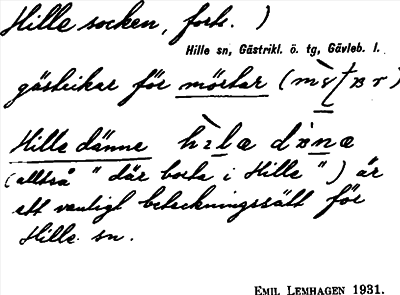 Hille socken, forts. )
Hille sn, Gästrikl. ö. tg, Gävleb. l.
gästrikar för mörtar (
Hille dänne hìlæ dànæ
(alltså "där borta i Hille") är
ett vanligt beteckningssätt för
Hille sn.
EMIL LEMHAGEN 1931.